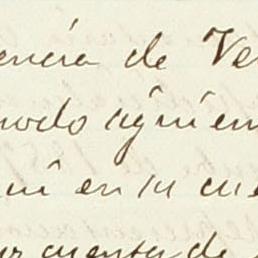 encia de Ve
modo siguien
en su cue
cuenta de